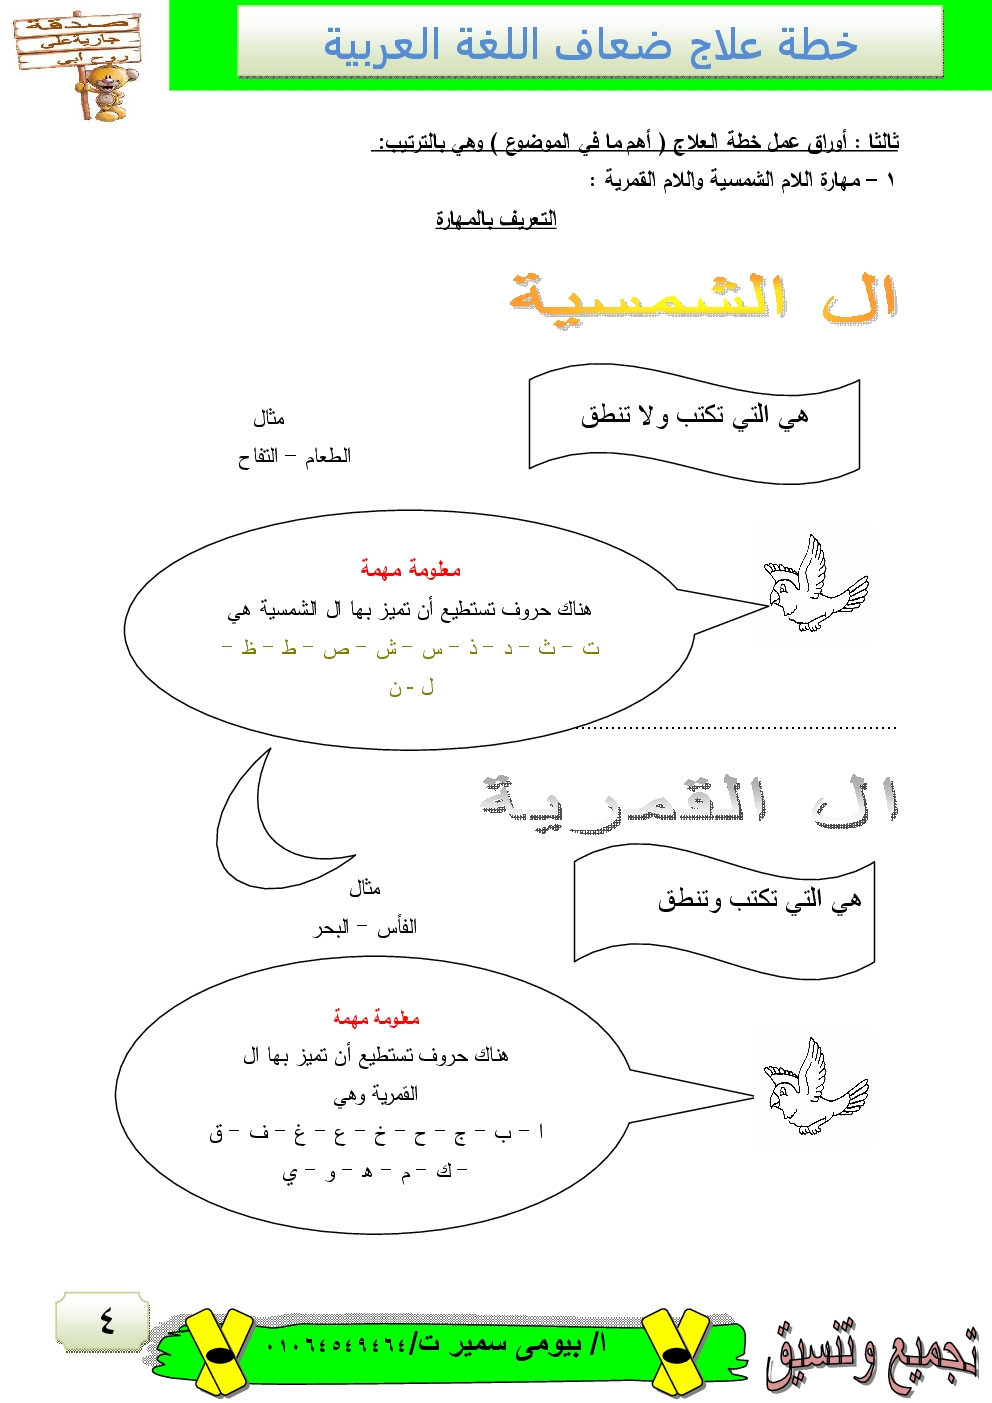 صدقة
جارية على
روح أبى
خطة علاج ضعاف اللغة العربية
ثالثا : أوراق عمل خطة العلاج ( أهم ما في الموضوع ) وهي بالترتيب:
١ – مهارة اللام الشمسية واللام القمرية :
التعريف بالمهارة
ال الشمسية
هي التي تكتب ولا تنطق
مثال
الطعام – التفاح
معلومة مهمة
هناك حروف تستطيع أن تميز بها ال الشمسية هي
ت – ث – د – ذ – س – ش – ص – ط – ظ –
ل - ن
ال القمرية
هي التي تكتب وتنطق
مثال
الفأس – البحر
معلومة مهمة
هناك حروف تستطيع أن تميز بها ال
القمرية وهي
ا – ب – ج – ح – خ – ع – غ – ف – ق
– ك – م – ه – و – ي
٤
ا/ بيومى سمير ت/٠١٠٦٤٥٤٩٤٦٤
تجميع وتنسيق